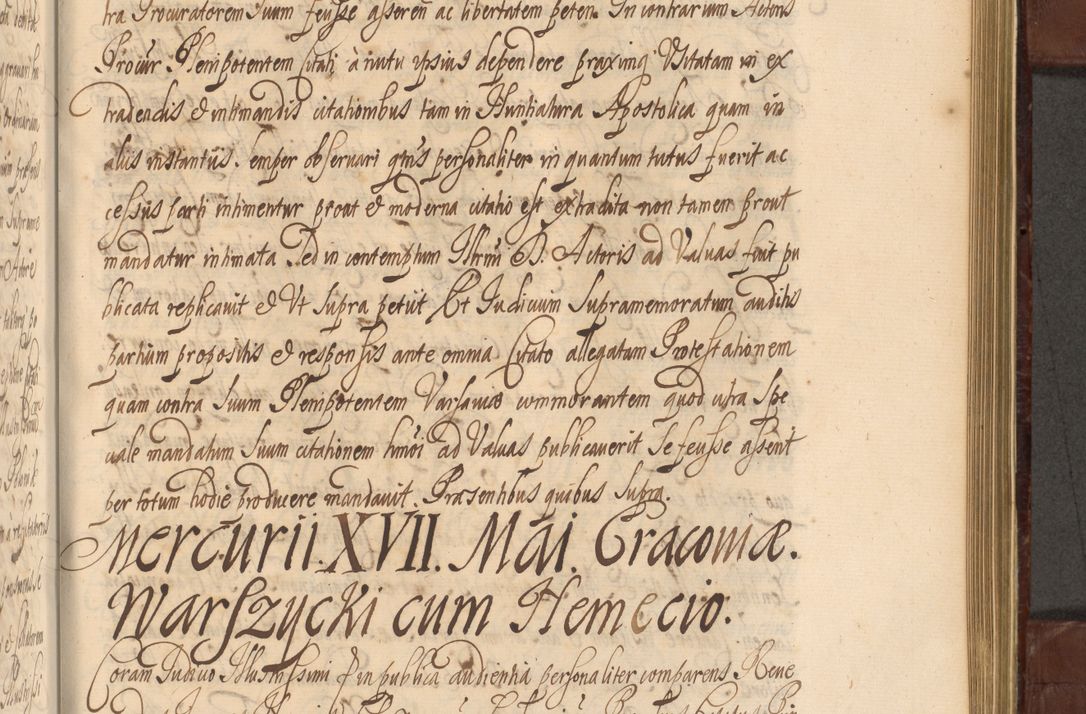 tra Procuratorem Suum feusse asseren ac libertatem peten. In contrarium Actoris
Procur Plenipotentem Citati à nutu ipsius dependere praximq Usitatam in ex
tradendis & intimandis citationibus tam in Nuntiatura Apostolica quam in
aliis instantiis. Semper observari qtnus personaliter in quantum tutus fuerit ac
cessus parti intimentur prout & moderna citatio est extradita non tamen prout
mandatur intimata Sed in contemptum Illrmi D. Actoris ad Valvas fuit pu
blicata replicavit & Ut Supra petiit Et Iudicium Supramemoratum auditis
partium propositis & responsis ante omnia Citato allegatam Protestationem
quam contra Suum Plenipotentem Varsaviae commorantem quod ultra Spe
ciale mandatum Suum citationem hmoi ad Valvas publicaverit Se feusse asserit
per totum hodie producere mandavit. Praesentibus quibus Supra.
Mercurii XVII. Mai. Cracoviæ.
Warszycki cum Nemecio.
Coram Iudicio Illustrissimi & in publica audientia personaliter comparens Reve